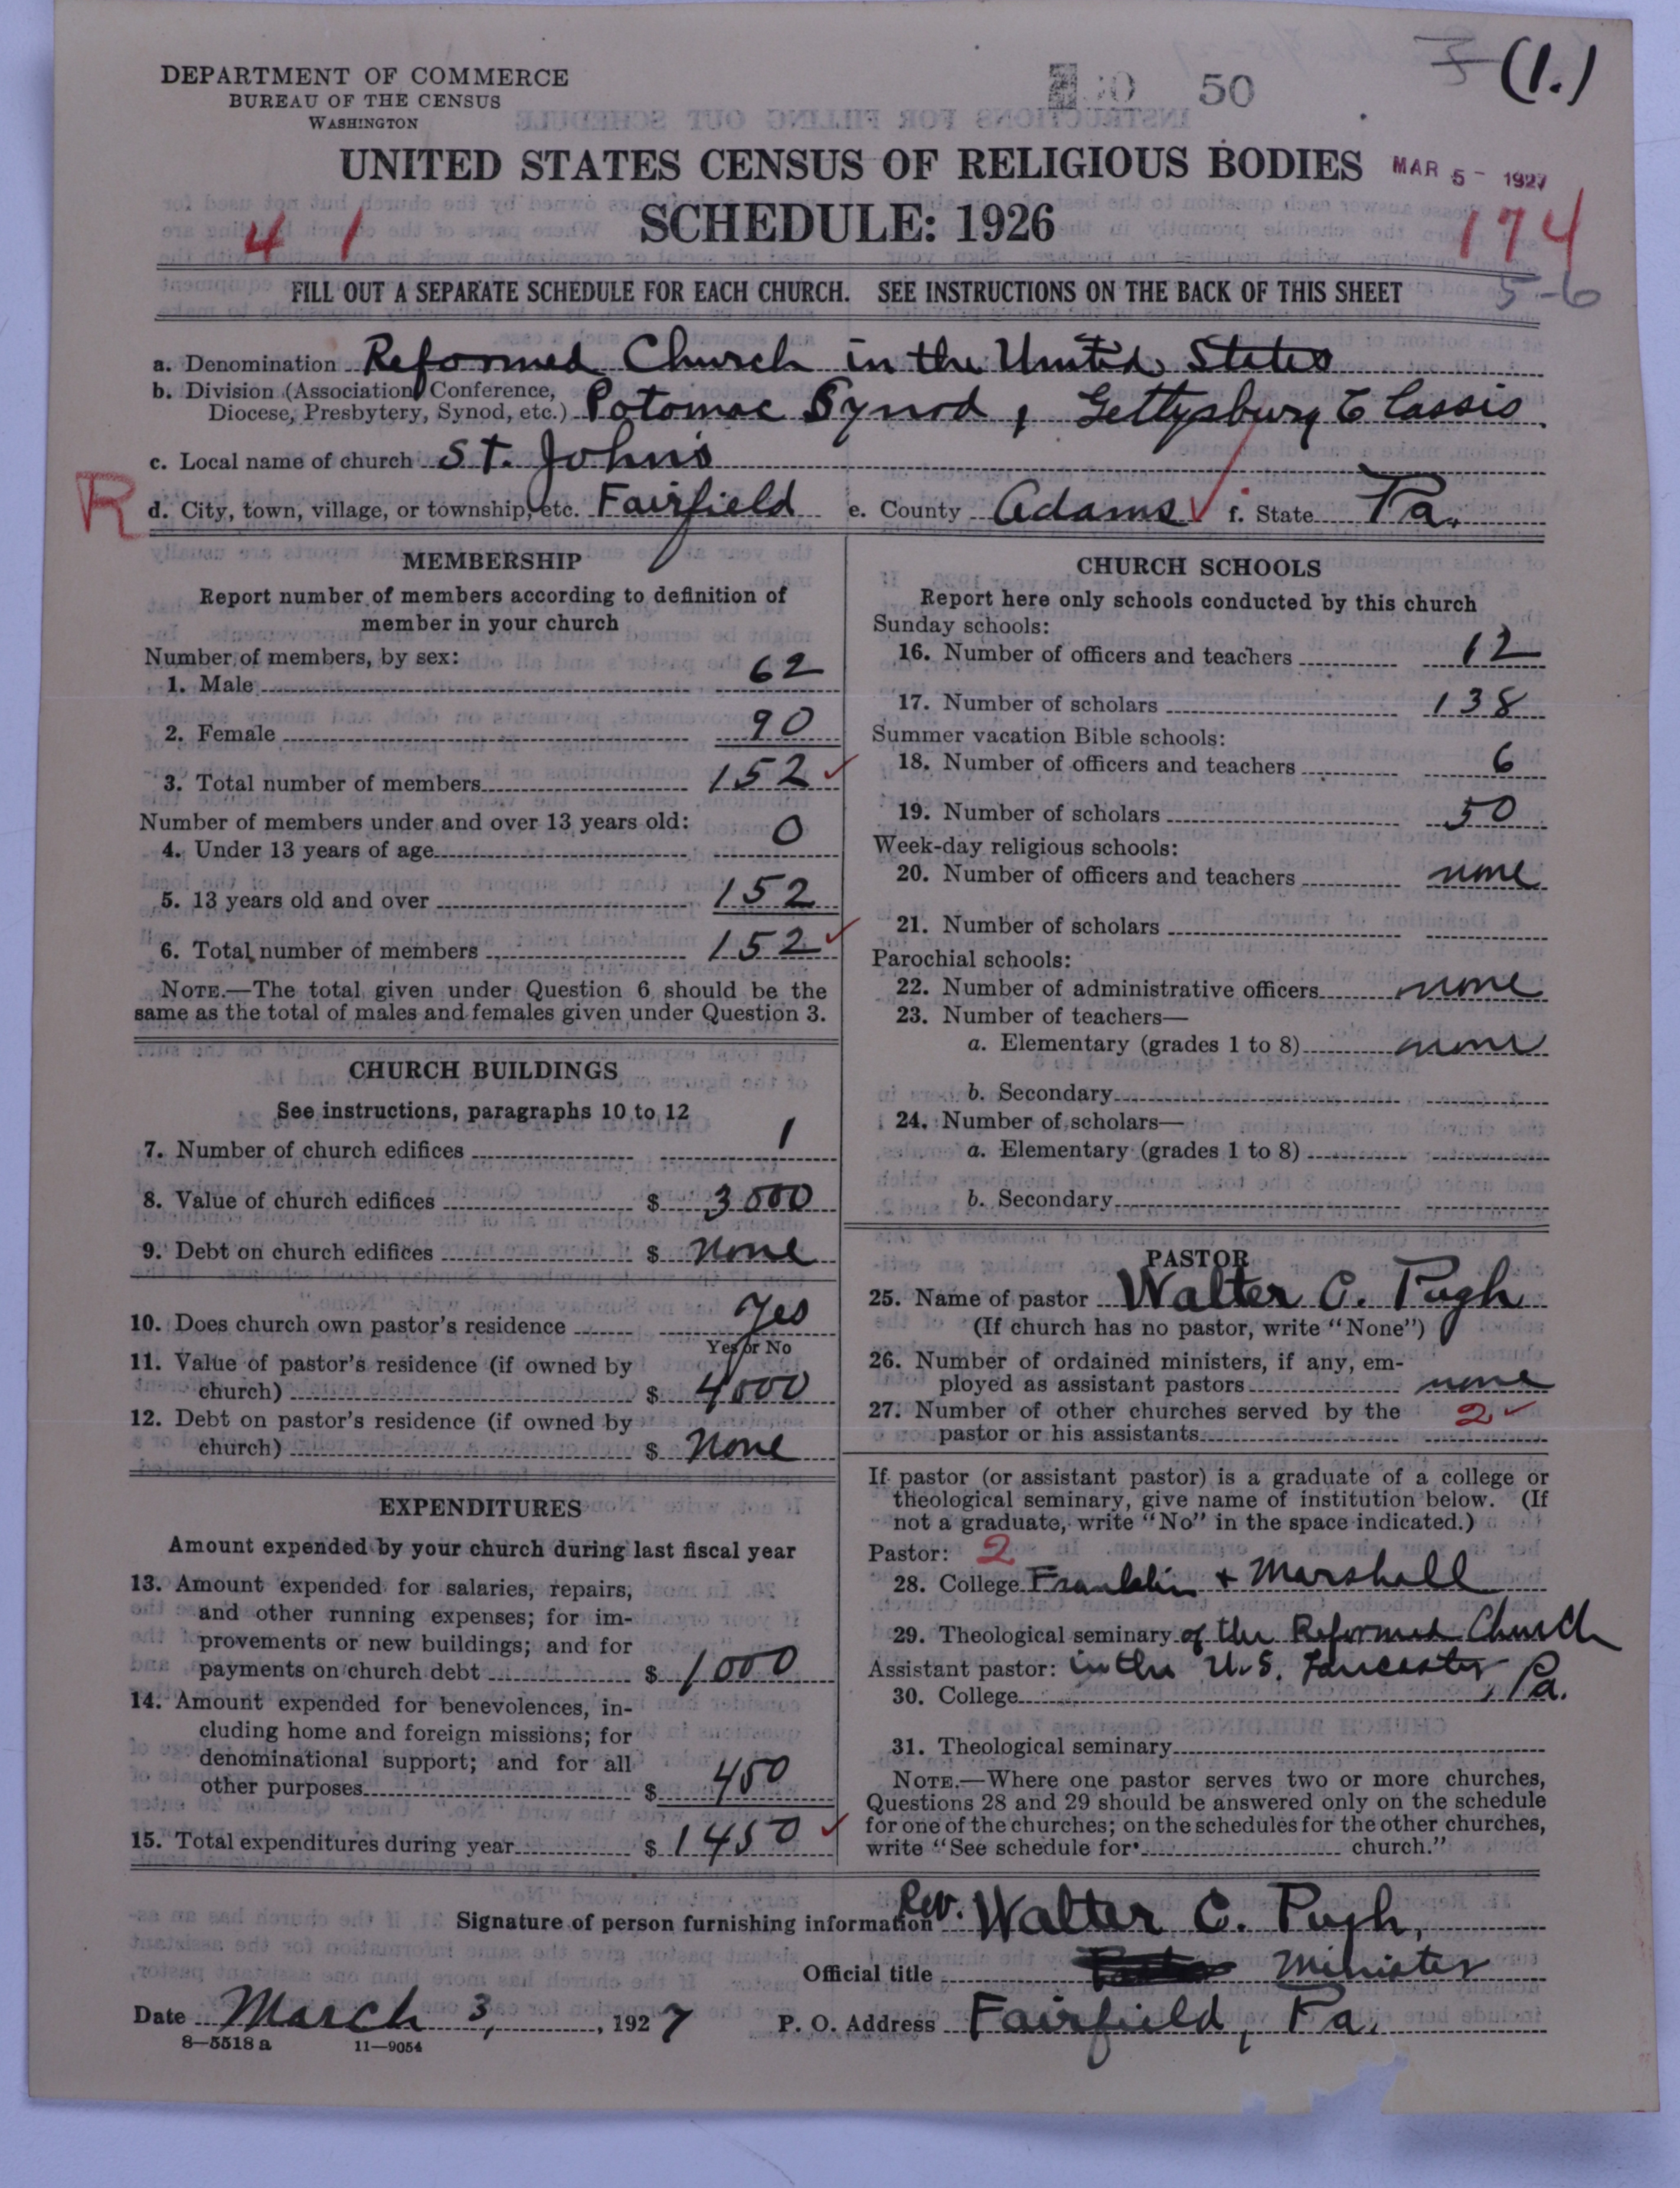 (1.)
DEPARTMENT OF COMMERCE
BUREAU OF THE CENSUS
WASHINGTON
50
UNITED STATES CENSUS OF RELIGIOUS BODIES
MAR 5 - 1927
SCHEDULE: 1926
4 1
174
FILL OUT A SEPARATE SCHEDULE FOR EACH CHURCH. SEE INSTRUCTIONS ON THE BACK OF THIS SHEET
5-6
a. Denomination Reformed Church in the United States
b. Division (Association, Conference,
Diocese, Presbytery, Synod, etc.) Potomac Synod, Gettysburg Classis
c. Local name of church St. John's
R
d. City, town, village, or township, etc. Fairfield e. County Adams f. State Pa.
MEMBERSHIP
Report number of members according to definition of
member in your church
Number of members, by sex:
1. Male 62
2. Female 90
3. Total number of members 152
Number of members under and over 13 years old:
4. Under 13 years of age 0
5. 13 years old and over 152
6. Total number of members 152
NOTE.—The total given under Question 6 should be the
same as the total of males and females given under Question 3.
CHURCH BUILDINGS
See instructions, paragraphs 10 to 12
7. Number of church edifices 1
8. Value of church edifices $ 3000
9. Debt on church edifices $ none
10. Does church own pastor's residence Yes
Yes or No
11. Value of pastor's residence (if owned by
church) $ 4000
12. Debt on pastor's residence (if owned by
church) $ none
EXPENDITURES
Amount expended by your church during last fiscal year
13. Amount expended for salaries, repairs,
and other running expenses; for im-
provements or new buildings; and for
payments on church debt $ 1000
14. Amount expended for benevolences, in-
cluding home and foreign missions; for
denominational support; and for all
other purposes $ 450
15. Total expenditures during year $ 1450
CHURCH SCHOOLS
Report here only schools conducted by this church
Sunday schools:
16. Number of officers and teachers 12
17. Number of scholars 138
Summer vacation Bible schools:
18. Number of officers and teachers 6
19. Number of scholars 50
Week-day religious schools:
20. Number of officers and teachers none
21. Number of scholars
Parochial schools:
22. Number of administrative officers none
23. Number of teachers—
a. Elementary (grades 1 to 8) none
b. Secondary
24. Number of scholars—
a. Elementary (grades 1 to 8)
b. Secondary
PASTOR
25. Name of pastor Walter C. Pugh
(If church has no pastor, write "None")
26. Number of ordained ministers, if any, em-
ployed as assistant pastors none
27. Number of other churches served by the 2
pastor or his assistants
If pastor (or assistant pastor) is a graduate of a college or
theological seminary, give name of institution below. (If
not a graduate, write "No" in the space indicated.)
Pastor: 2
28. College Franklin + Marshall
29. Theological seminary of the Reformed Church
Assistant pastor: in the U.S. Lancaster, Pa.
30. College
31. Theological seminary
NOTE.—Where one pastor serves two or more churches,
Questions 28 and 29 should be answered only on the schedule
for one of the churches; on the schedules for the other churches,
write "See schedule for church."
Signature of person furnishing information Rev. Walter C. Pugh,
Official title Minister
Date March 3, 1927 P. O. Address Fairfield, Pa.
8—5518 a 11—9054